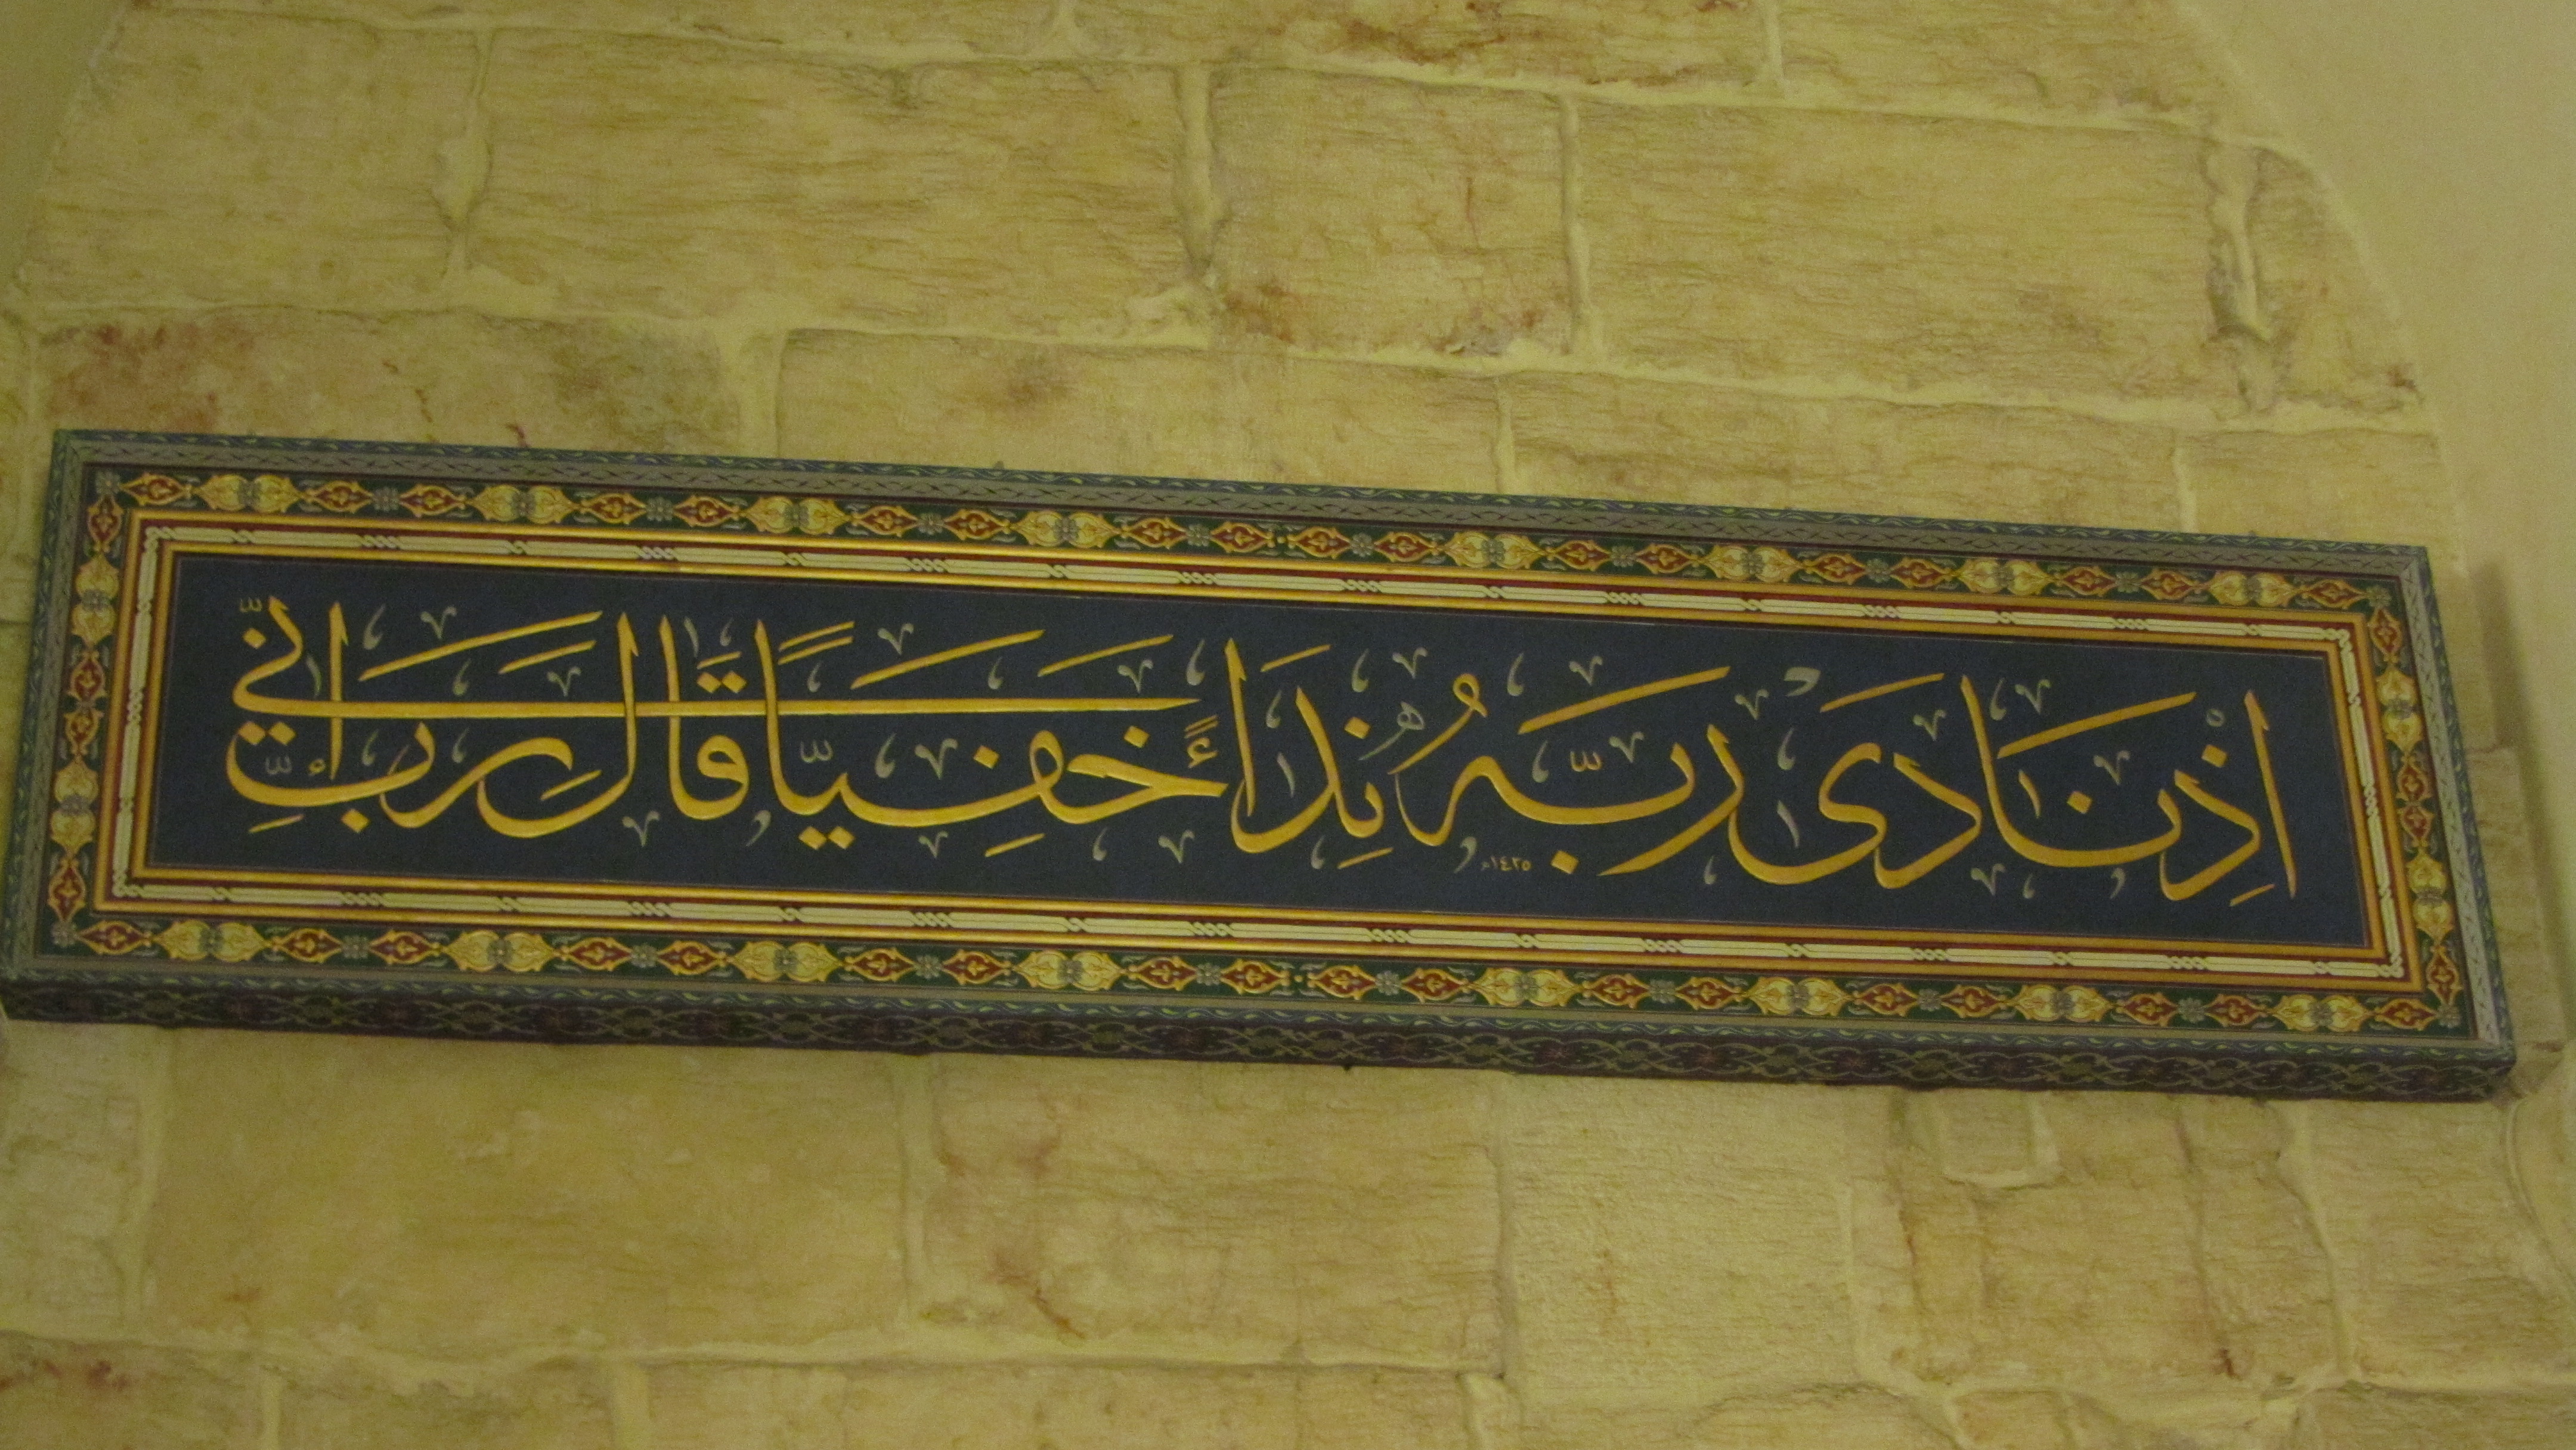 اِذْ نَادٰى رَبَّهُ نِدَاءً خَفِيًّا قَالَ رَبِّ اِنّٖي
١٤٢٥